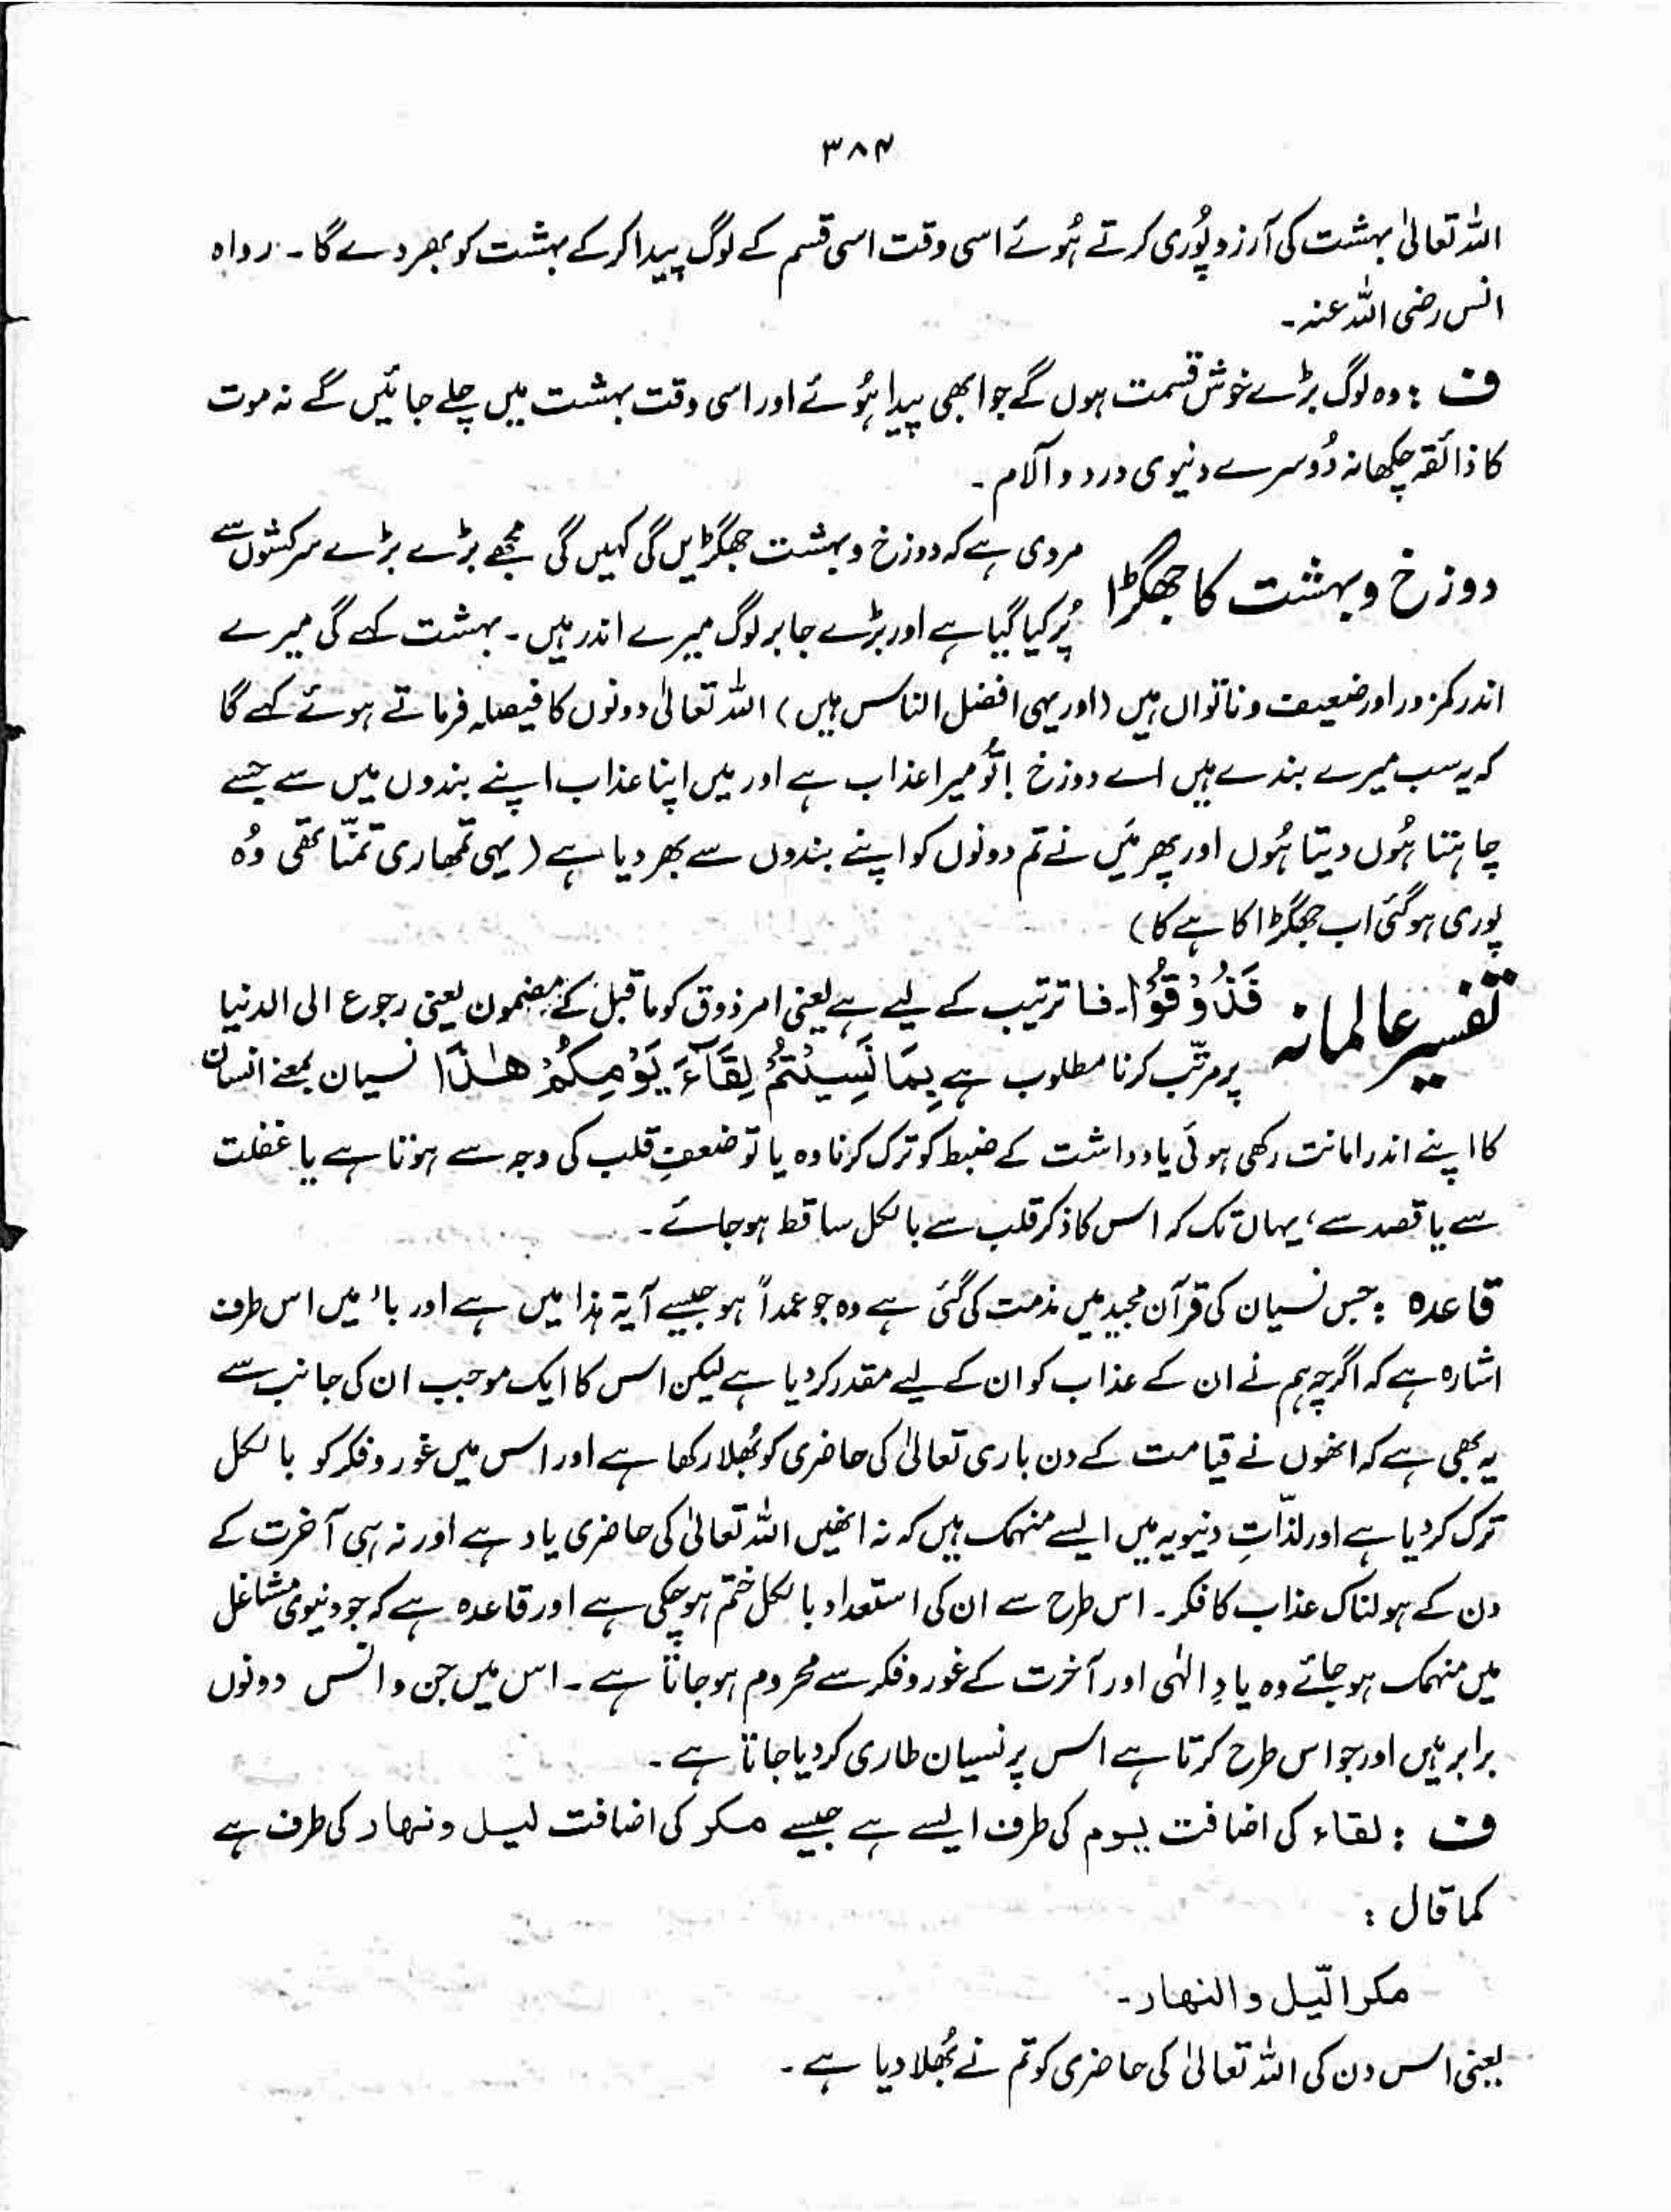 ۳۸۴
اللہ تعالیٰ بہشت کی آرزو پُوری کرتے ہُوئے اسی وقت اسی قسم کے لوگ پیدا کرکے بہشت کو بھر دے گا۔ رواہ
انس رضی اللہ عنہ۔
ف : وہ لوگ بڑے خوش قسمت ہوں گے جو ابھی پیدا ہُوئے اور اسی وقت بہشت میں چلے جائیں گے نہ موت
کا ذائقہ چکھا نہ دُوسرے دنیوی درد و آلام۔
دوزخ و بہشت کا جھگڑا مروی ہے کہ دوزخ و بہشت جھگڑیں گی کہیں گی مجھے بڑے بڑے سرکشوں سے
پُر کیا گیا ہے اور بڑے جابر لوگ میرے اندر ہیں۔ بہشت کہے گی میرے
اندر کمزور اور ضعیف و ناتواں ہیں (اور یہی افضل الناس ہیں) اللہ تعالیٰ دونوں کا فیصلہ فرماتے ہوئے کہے گا
کہ یہ سب میرے بندے ہیں اے دوزخ ! تُو میرا عذاب ہے اور میں اپنا عذاب اپنے بندوں میں سے جسے
چاہتا ہُوں دیتا ہُوں اور پھر مَیں نے تم دونوں کو اپنے بندوں سے بھر دیا ہے (یہی تمھاری تمنّا تھی وُہ
پوری ہوگئی اب جھگڑا کاہے کا)
تفسیر عالمانہ فَذُوْقُوْا۔ فا ترتیب کے لیے ہے یعنی امر ذوق کو ماقبل کے مضمون یعنی رجوع الی الدنیا
پر مرتّب کرنا مطلوب ہے بِمَا نَسِیْتُمْ لِقَآءَ یَوْمِکُمْ ھٰذَا نسیان بمعنے انسان
کا اپنے اندر امانت رکھی ہوئی یادداشت کے ضبط کو ترک کرنا وہ یا تو ضعفِ قلب کی وجہ سے ہوتا ہے یا غفلت
سے یا قصد سے، یہاں تک کہ اس کا ذکر قلب سے بالکل ساقط ہوجائے۔
قاعدہ : جس نسیان کی قرآن مجید میں مذمت کی گئی ہے وہ جو عمداً ہو جیسے آیۃ ہذا میں ہے اور باء میں اس طرف
اشارہ ہے کہ اگرچہ ہم نے ان کے عذاب کو ان کے لیے مقدر کردیا ہے لیکن اس کا ایک موجب ان کی جانب سے
یہ بھی ہے کہ انھوں نے قیامت کے دن باری تعالیٰ کی حاضری کو بُھلا رکھا ہے اور اس میں غور و فکر کو بالکل
ترک کردیا ہے اور لذّاتِ دنیویہ میں ایسے منہمک ہیں کہ نہ انھیں اللہ تعالیٰ کی حاضری یاد ہے اور نہ ہی آخرت کے
دن کے ہولناک عذاب کا فکر۔ اس طرح سے ان کی استعداد بالکل ختم ہوچکی ہے اور قاعدہ ہے کہ جو دنیوی مشاغل
میں منہمک ہوجائے وہ یادِ الٰہی اور آخرت کے غور و فکر سے محروم ہوجاتا ہے۔ اس میں جن و انس دونوں
برابر ہیں اور جو اس طرح کرتا ہے اس پر نسیان طاری کردیا جاتا ہے۔
ف : لقاء کی اضافت یوم کی طرف ایسے ہے جیسے مکر کی اضافت لیل و نہار کی طرف ہے
کما قال :
مکر الّیل والنھار۔
یعنی اس دن کی اللہ تعالیٰ کی حاضری کو تم نے بُھلا دیا ہے۔